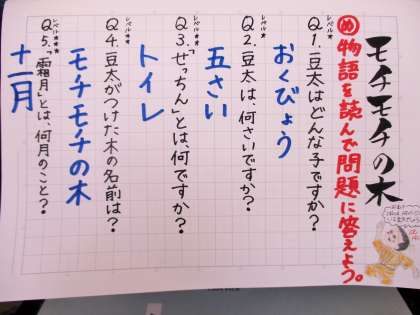 モチモチの木
め 物語を読んで問題に答えよう。
レベル★
Q1.豆太はどんな子ですか?
おくびょう
レベル★
Q2.豆太は、何さいですか?
五さい
レベル★★
Q3.「せっちん」とは、何ですか?
トイレ
レベル★★
Q4.豆太がつけた木の名前は?
モチモチの木
レベル★★★
Q5.「霜月」とは、何月のこと?
十一月